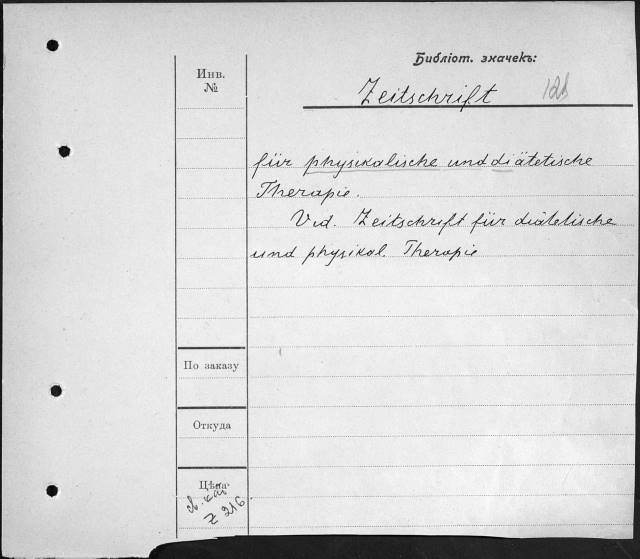 Библіот. значекъ:
Инв.
№
Zeitschrift
für physikalische und diätetische
Therapie.
Vid. Zeitschrift für diätetische
und physikal. Therapie
По заказу
Откуда
Цѣна
Z 216.